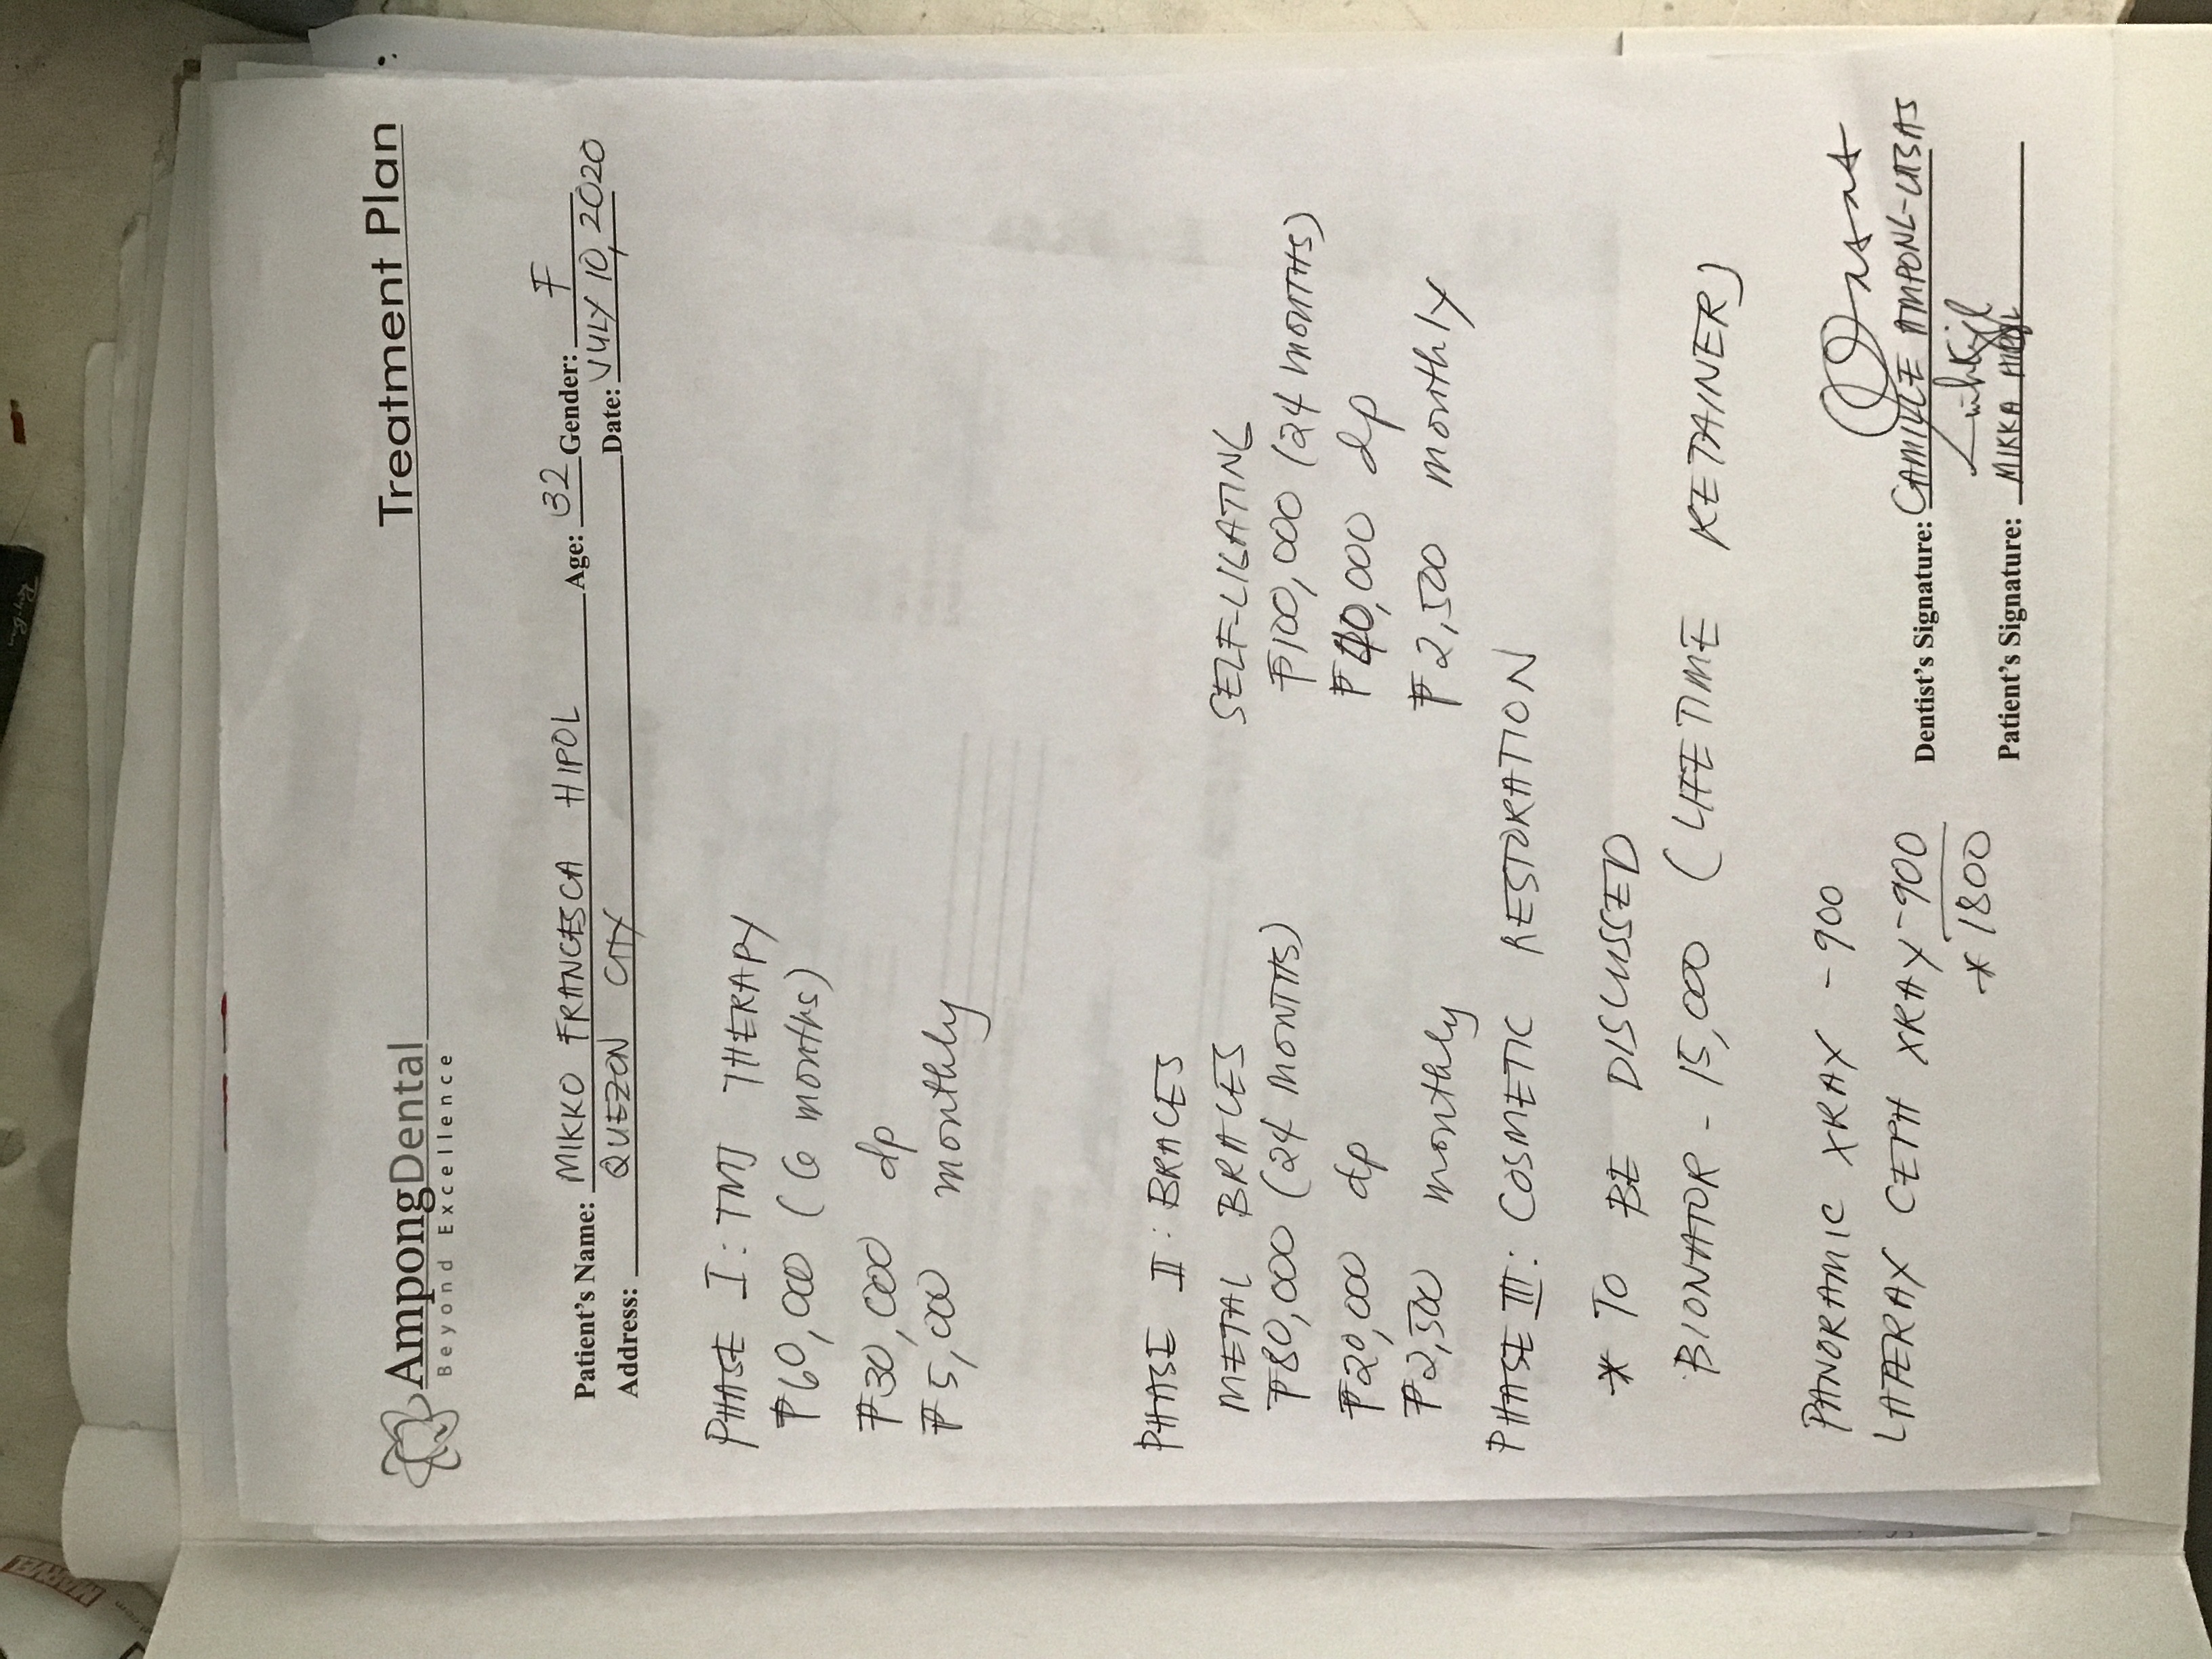 AmpongDental Treatment Plan
Beyond Excellence
Patient's Name: MIKKO FRANCESCA HIPOL Age: 32 Gender: F
Address: QUEZON CITY Date: JULY 10, 2020
PHASE I: TMJ THERAPY
₱60,000 (6 months)
₱30,000 dp
₱5,000 monthly
PHASE II: BRACES
METAL BRACES SELF-LIGATING
₱80,000 (24 MONTHS) ₱100,000 (24 MONTHS)
₱20,000 dp ₱40,000 dp
₱2,500 monthly ₱2,500 monthly
PHASE III: COSMETIC RESTORATION
* TO BE DISCUSSED
BIONATOR - 15,000 (LIFETIME RETAINER)
PANORAMIC XRAY - 900
LATERAL CEPH XRAY - 900
* 1800
Dentist's Signature: CAMILLE AMPONG-UBAS
Patient's Signature: MIKKA
MARVEL